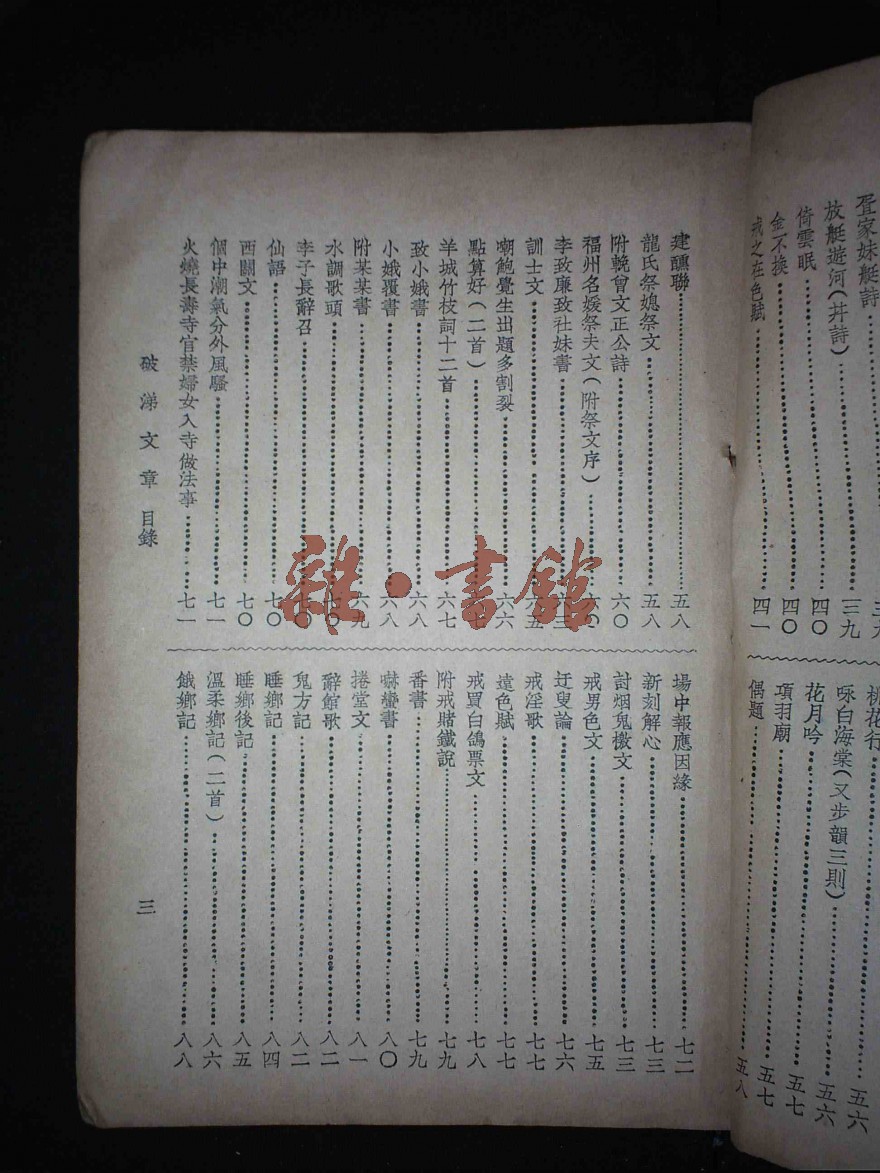 疍家妹艇詩……三九
放艇遊河(幷詩)……三九
倚雲眠……四〇
金不換……四〇
戒之在色賦……四一
桃花行……五六
咏白海棠(又步韻三則)……五六
花月吟……五七
項羽廟……五七
偶題……五八
建醮聯……五八
龍氏祭媳祭文……五八
附輓曾文正公詩……六〇
福州名媛祭夫文(附祭文序)……六〇
李致廉致社妹書……六三
訓士文……六五
嘲飽覺生出題多割裂……六六
點算好(二首)……六七
羊城竹枝詞十二首……六七
致小娥書……六八
小娥覆書……六八
附某某書……六九
水調歌頭……七〇
李子長辭召……七〇
仙語……七〇
西關文……七〇
個中潮氣分外風騷……七一
火燒長壽寺官禁婦女入寺做法事……七一
場中報應因緣……七二
新刻解心……七三
討烟鬼檄文……七三
戒男色文……七五
迂叟論……七六
戒淫歌……七七
遠色賦……七七
戒買白鴿票文……七八
附戒賭鐵說……七九
番書……七九
嚇蠻書……八〇
捲堂文……八一
辭館歌……八二
鬼方記……八二
睡鄉記……八四
睡鄉後記……八五
溫柔鄉記(二首)……八六
餓鄉記……八八
破涕文章 目錄
三
雜·書館